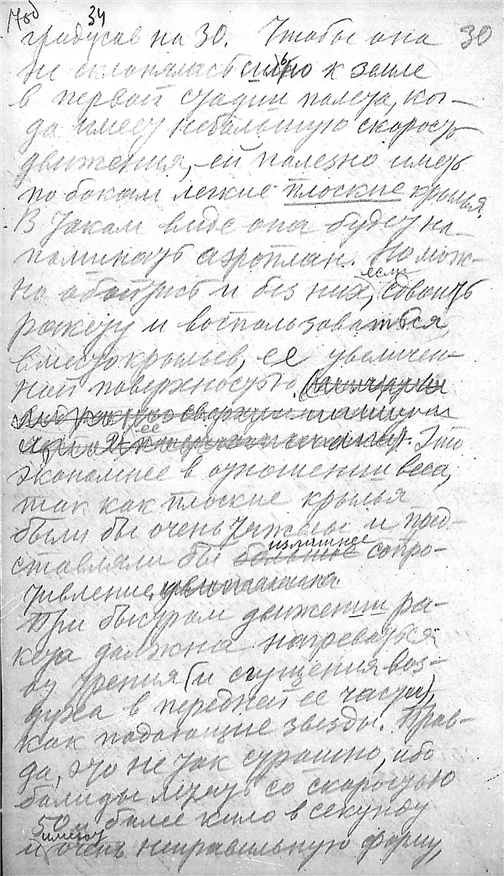 34
градусов на 30. Чтобы она 30
не склонялась сильно к земле
в первой стадии полета, ког-
да имеет небольшую скорость
движения, ей полезно иметь
по бокам легкие плоские крылья.
В таком виде она будет на-
поминать аэроплан. Но мож-
но обойтись и без них, если сдвоить
ракету и воспользоваться
вместо крыльев, ее увеличен-
ной поверхностью
ее Это
экономнее в отношении веса,
так как плоские крылья
были бы очень тяжелы и пред-
ставляли бы излишнее сопро-
тивление
При быстром движении ра-
кета должна нагреваться
от трения (и сгущения воз-
духа в передней ее части),
как падающие звезды. Прав-
да, это не так страшно, ибо
болиды летят со скоростью
50 и более кило в секунду
и имеют очень неправильную форму,